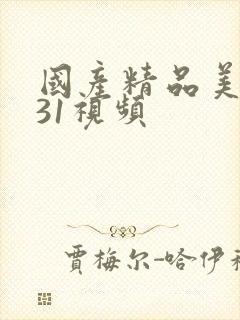 國産精品美
31視頻
賈梅尔-哈伊利